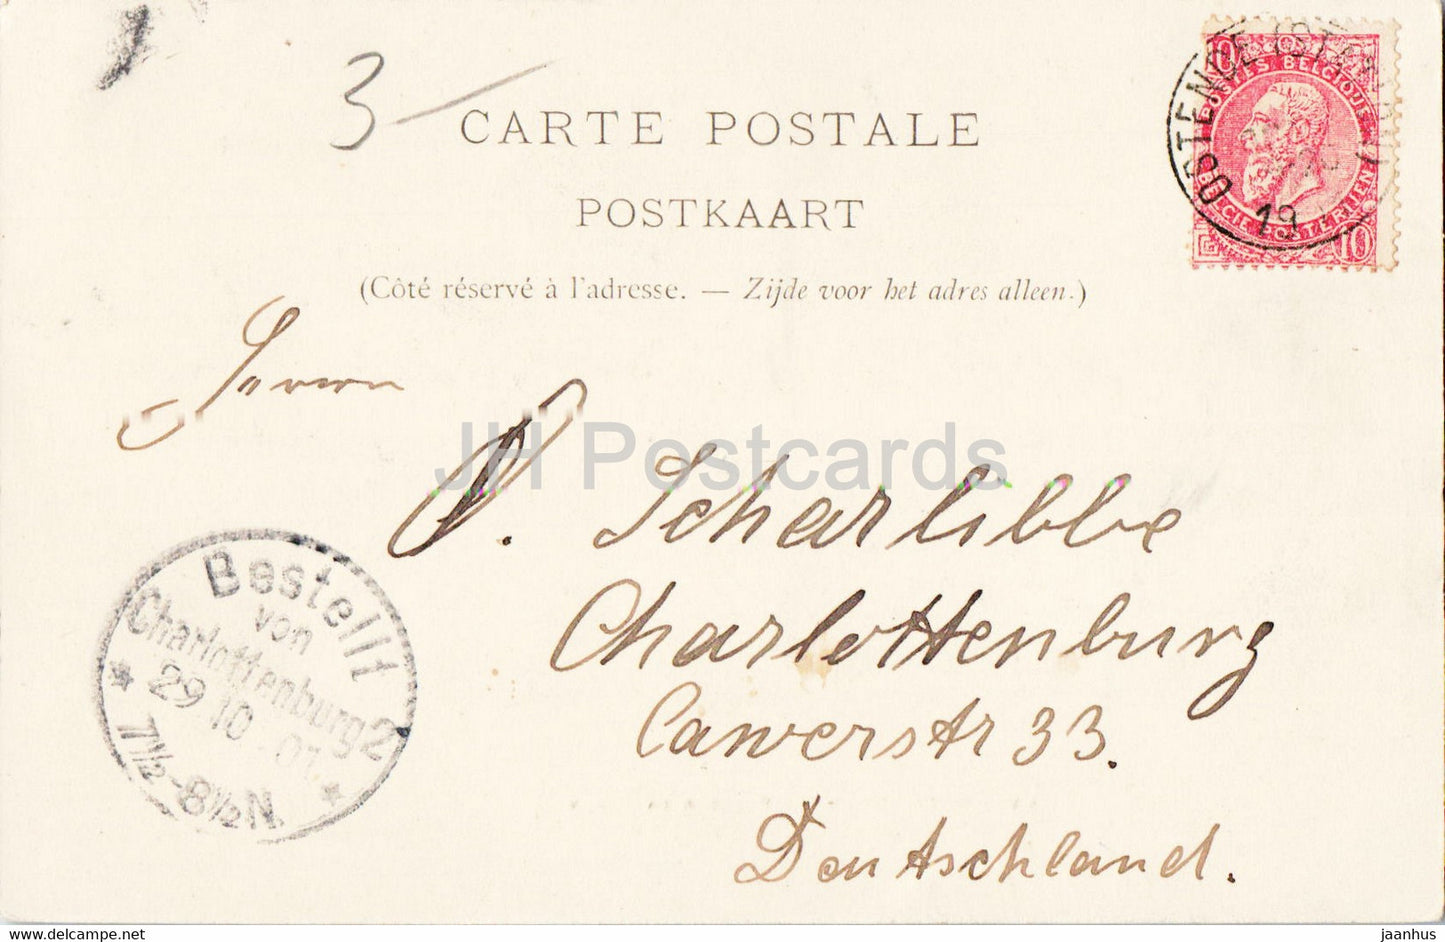 3
CARTE POSTALE
POSTKAART
(Côté réservé à l'adresse. — Zijde voor het adres alleen.)
OSTENDE
10
POSTES BELGIQUE
BELGIE POSTERIJEN
10
19
JH Postcards
Herrn
O. Scharlibbe
Charlottenburg
Cauerstr 33.
Deutschland.
Bestellt
von
Charlottenburg 2
29 10 01
7½-8½N.
delcampe.net
jaanhus